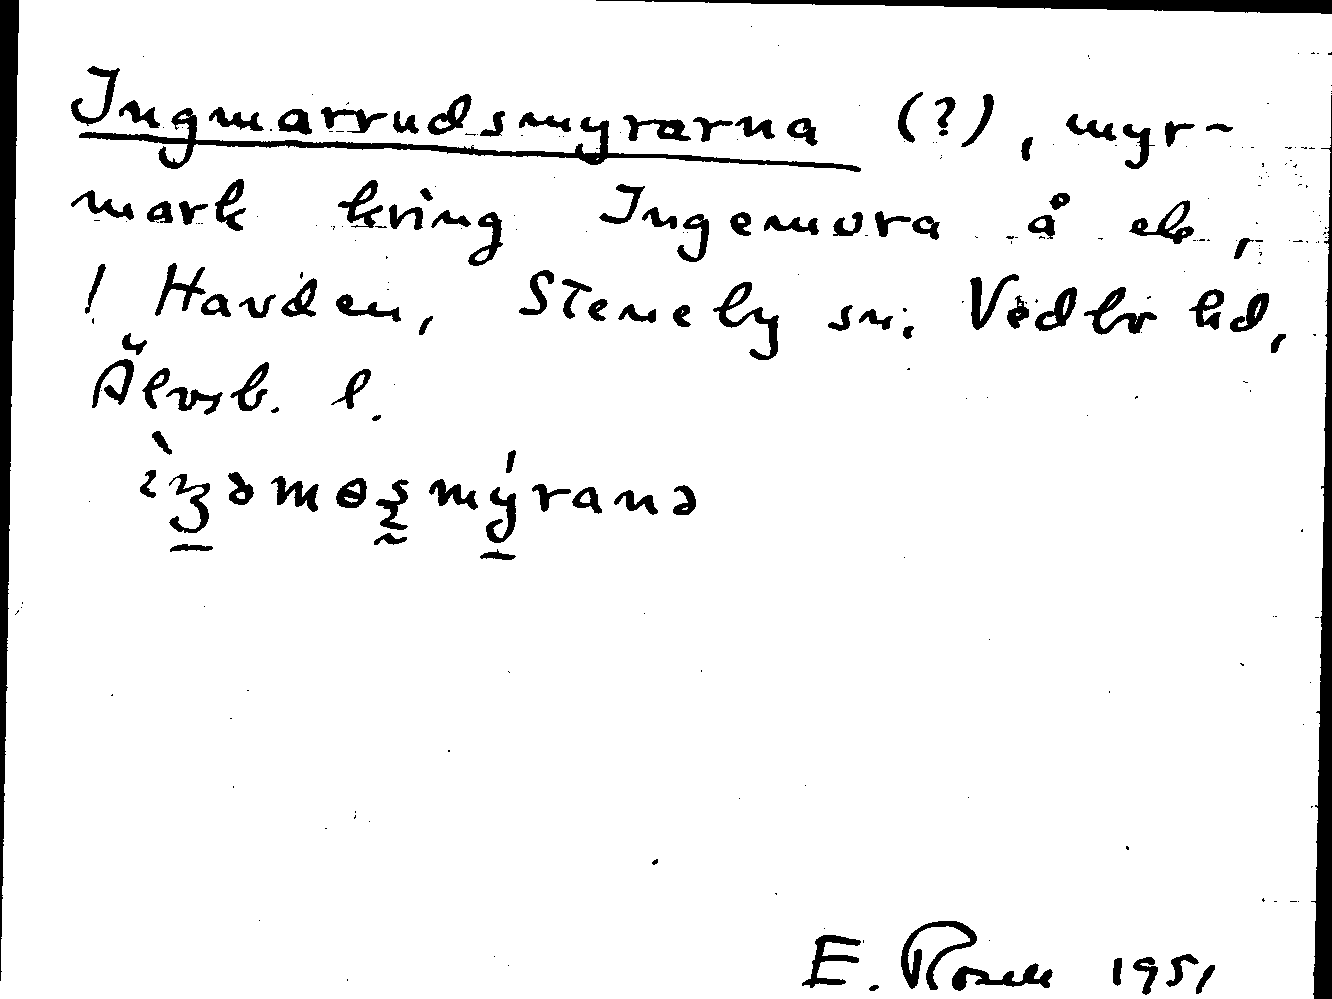 Ingmarrudsmyrarna (?), myr-
mark kring Ingemora å ek,
! Havden, Steneby sn. Vedbo hd,
Älvsb. l.
E. Rosell 1951